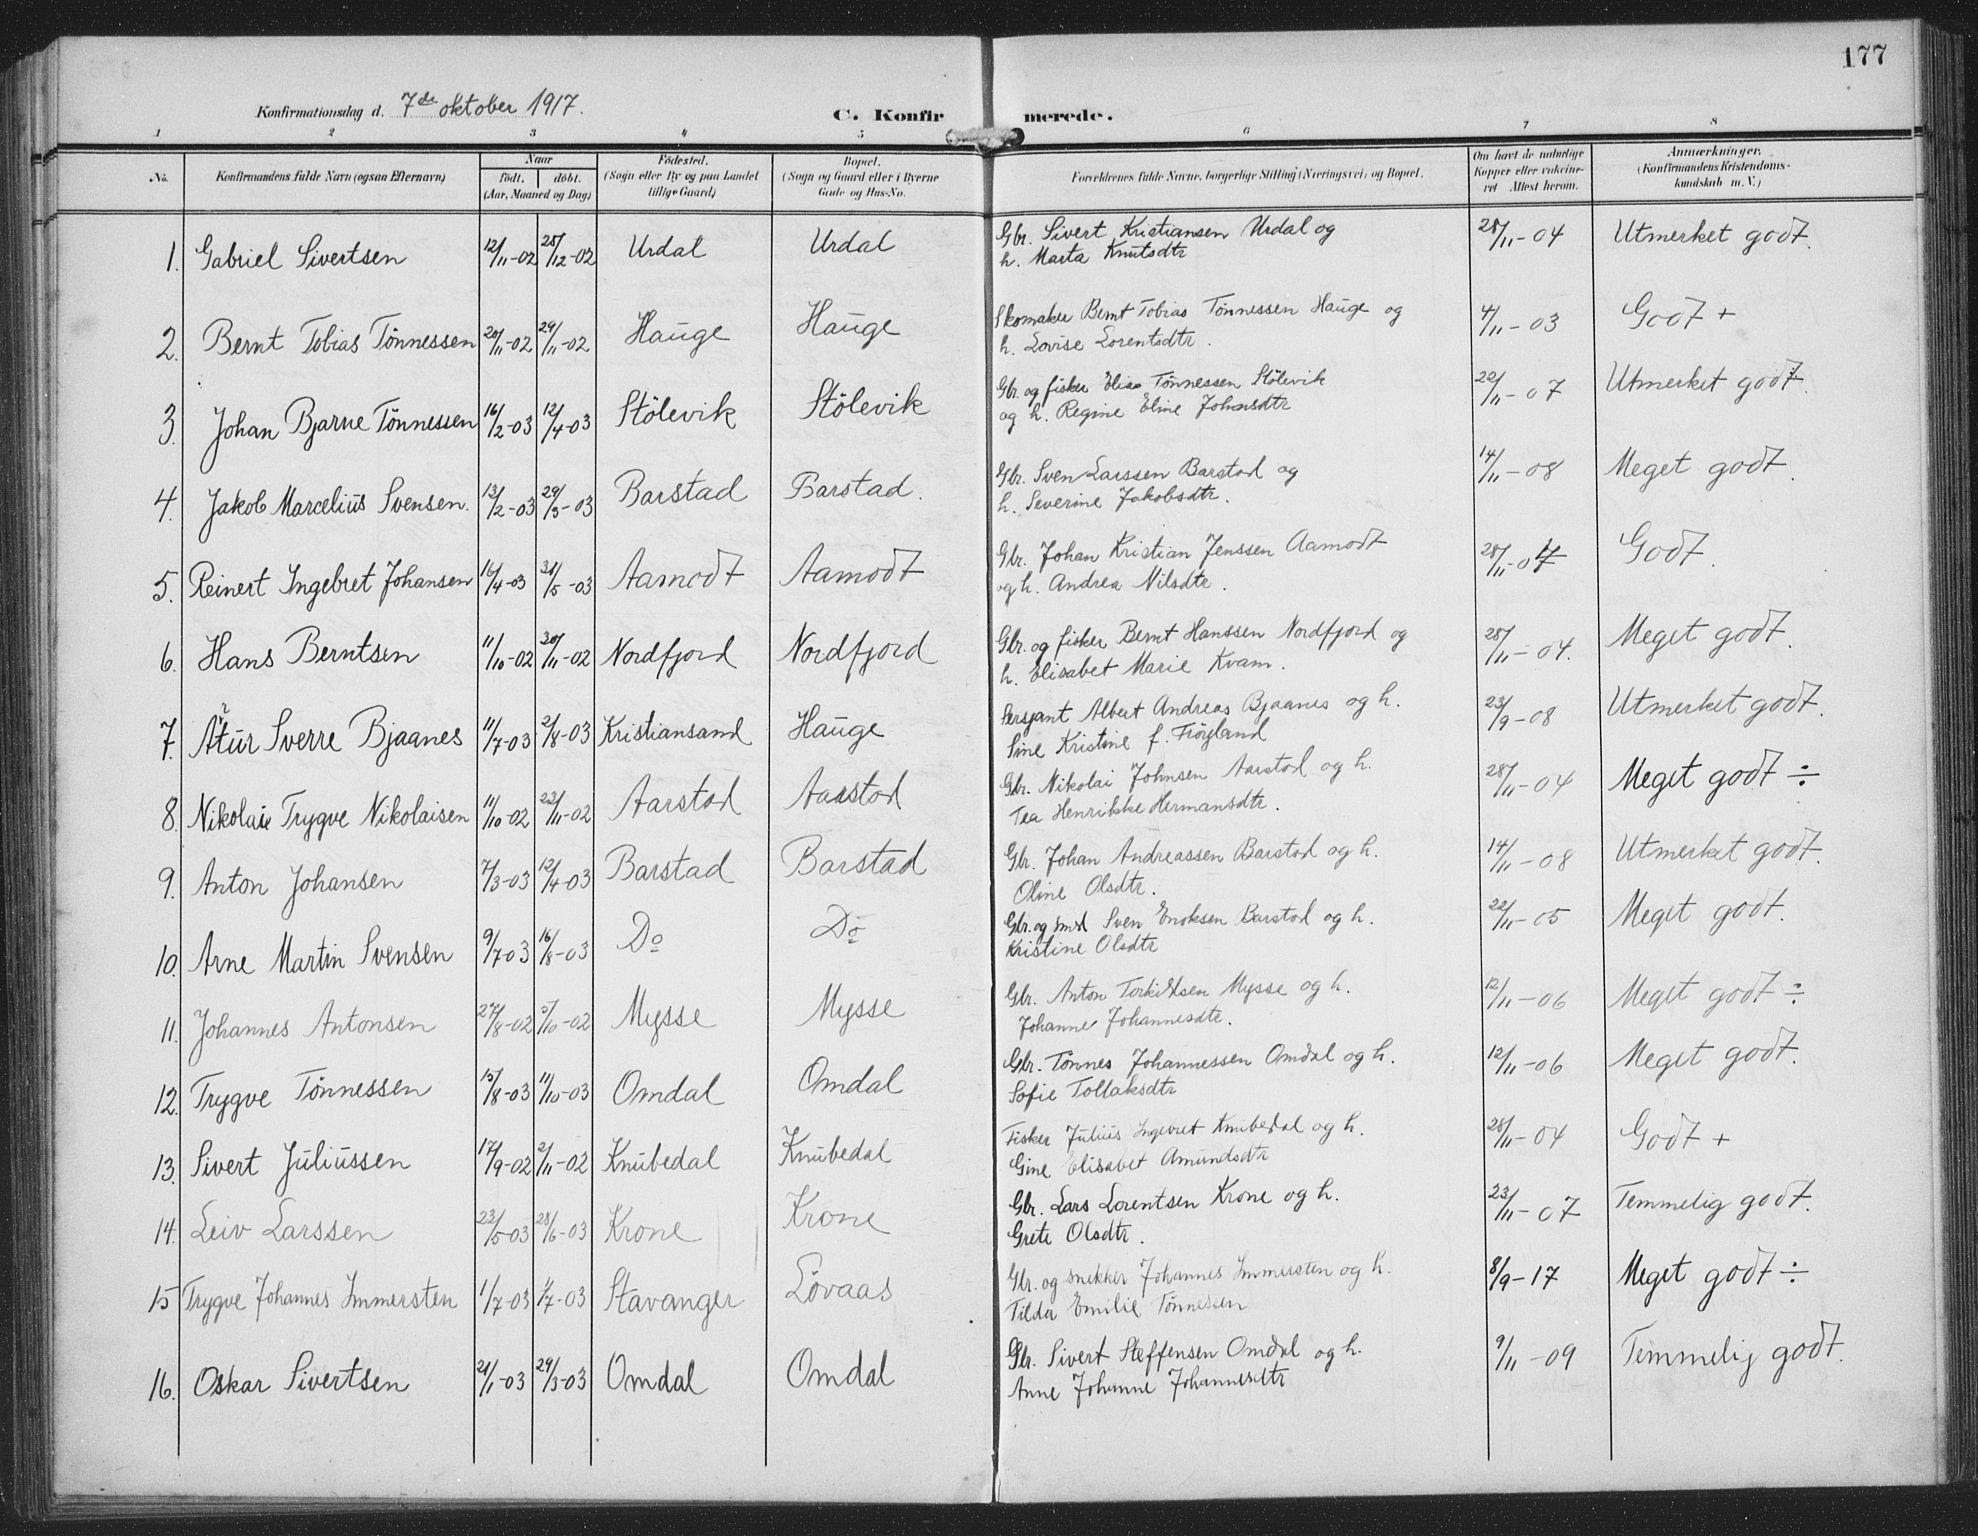 177
Konfirmationsdag d. 7de oktober 1917.
C. Konfirmerede.
1 2 3 4 5 6 7 8
No. Konfirmandens fulde Navn (ogsaa Efternavn) Naar født. døbt. (Aar, Maaned og Dag) Fødested. (Sogn eller By og paa Landet tillige Gaard) Bopæl. (Sogn og Gaard eller i Byerne Gade og Hus-No. Forældrenes fulde Navne, borgerlige Stilling (Næringsvei) og Bopæl. Om havt de naturlige Kopper eller vaccineret Attest herom. Anmærkninger. (Konfirmandens Kristendomskundskab m. V.)
1. Gabriel Sivertsen 12/11-02 25/12-02 Urdal Urdal Gbr. Sivert Kristiansen Urdal og 28/11-04 Utmerket godt.
h. Marta Knutsdtr
2. Bernt Tobias Tønnessen 20/11-02 29/11-02 Hauge Hauge Skomaker Bernt Tobias Tønnessen Hauge og 4/11-03 Godt +
h. Lovise Lorentsdtr.
3. Johan Bjarne Tønnessen 16/2-03 12/4-03 Stölevik Stölevik Gbr. og fisker Elias Tønnessen Stölevik 22/11-07 Utmerket godt.
og h. Regine Eline Johnsdtr
4. Jakob Marcelius Svensen. 13/2-03 29/3-03 Barstad Barstad. Gbr. Sven Larssen Barstad og 14/11-08 Meget godt.
h. Severine Jakobsdtr.
5. Reinert Ingebret Johansen 16/4-03 31/5-03 Aamodt Aamodt Gbr. Johan Kristian Jenssen Aamodt 28/11-04 Godt.
og h. Andrea Nilsdtr.
6. Hans Berntsen 11/10-02 30/11-02 Nordfjord Nordfjord Gbr. og fisker Bernt Hanssen Nordfjord og 28/11-04. Meget godt.
h. Elisabet Marie Kvam.
7. Artur Sverre Bjaanes 11/7-03 2/8-03 Kristiansand Hauge Sersjant Albert Andreas Bjaanes og h. 23/9-08 Utmerket godt.
Sine Kristine f. Frøyland
8. Nikolai Trygve Nikolaisen 11/10-02 23/11-02 Aarstad Aarstad Gbr. Nikolai Johnsen Aarstad og h. 28/11-04 Meget godt ÷
Tea Henrikke Hermansdtr.
9. Anton Johansen 7/3-03 12/4-03 Barstad Barstad Gbr. Johan Andreassen Barstad og h. 14/11-08 Utmerket godt.
Oline Olsdtr.
10. Arne Martin Svensen 9/7-03 16/8-03 Do Do Gbr. og smed Sven Enoksen Barstad og h. 22/11-05 Meget godt.
Kristine Olsdtr
11. Johannes Antonsen 27/8-02 5/10-02 Mysse Mysse Gbr. Anton Torkildsen Mysse og h. 12/11-06 Meget godt ÷
Johanne Johannesdtr.
12. Trygve Tönnessen 15/8-03 11/10-03 Omdal Omdal Gbr. Tønnes Johannessen Omdal og h. 12/11-06 Meget godt.
Sofie Tollaksdtr
13. Sivert Juliussen 17/9-02 2/11-02 Knubedal Knubedal Fisker Julius Ingevret Knubedal og h. 28/11-04 Godt +
Gine Elisabet Amundsdtr
14. Leiv Larssen 23/5-03 28/6-03 Krone Krone Gbr. Lars Lorentsen Krone og h. 23/11-07 Temmelig godt.
Grete Olsdtr.
15 Trygve Johannes Immersten 1/7-03 1/7-03 Stavanger Lövaas Gbr. og snekker Johannes Immersten og h. 8/9-17 Meget godt ÷
Tilda Emilie Tønnessen
16. Oskar Sivertsen 21/1-03 29/3-03 Omdal Omdal Gbr. Sivert Steffensen Omdal og h. 9/11-09 Temmelig godt.
Anne Johanne Johannesdtr